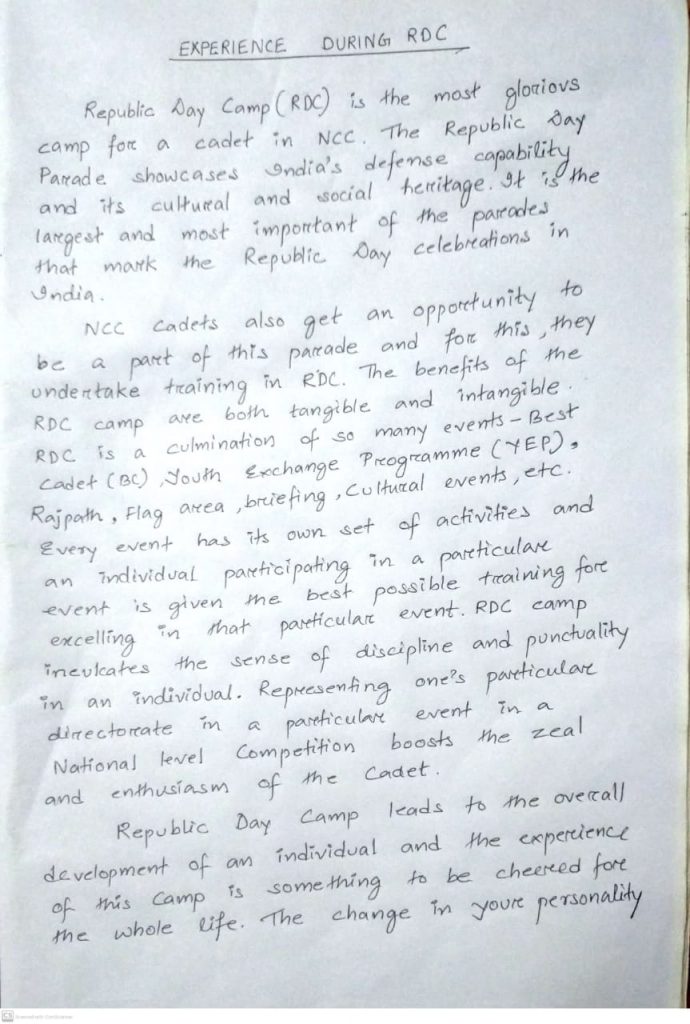 EXPERIENCE DURING RDC
Republic Day Camp (RDC) is the most glorious
camp for a cadet in NCC. The Republic Day
Parade showcases India's defense capability
and its cultural and social heritage. It is the
largest and most important of the parades
that mark the Republic Day celebrations in
India.
NCC cadets also get an opportunity to
be a part of this parade and for this, they
undertake training in RDC. The benefits of the
RDC camp are both tangible and intangible.
RDC is a culmination of so many events - Best
Cadet (BC), Youth Exchange Programme (YEP),
Rajpath, Flag area, briefing, Cultural events, etc.
Every event has its own set of activities and
an individual participating in a particular
event is given the best possible training for
excelling in that particular event. RDC camp
inculcates the sense of discipline and punctuality
in an individual. Representing one's particular
directorate in a particular event in a
National level Competition boosts the zeal
and enthusiasm of the Cadet.
Republic Day Camp leads to the overall
development of an individual and the experience
of this Camp is something to be cheered for
the whole life. The change in your personality
CS